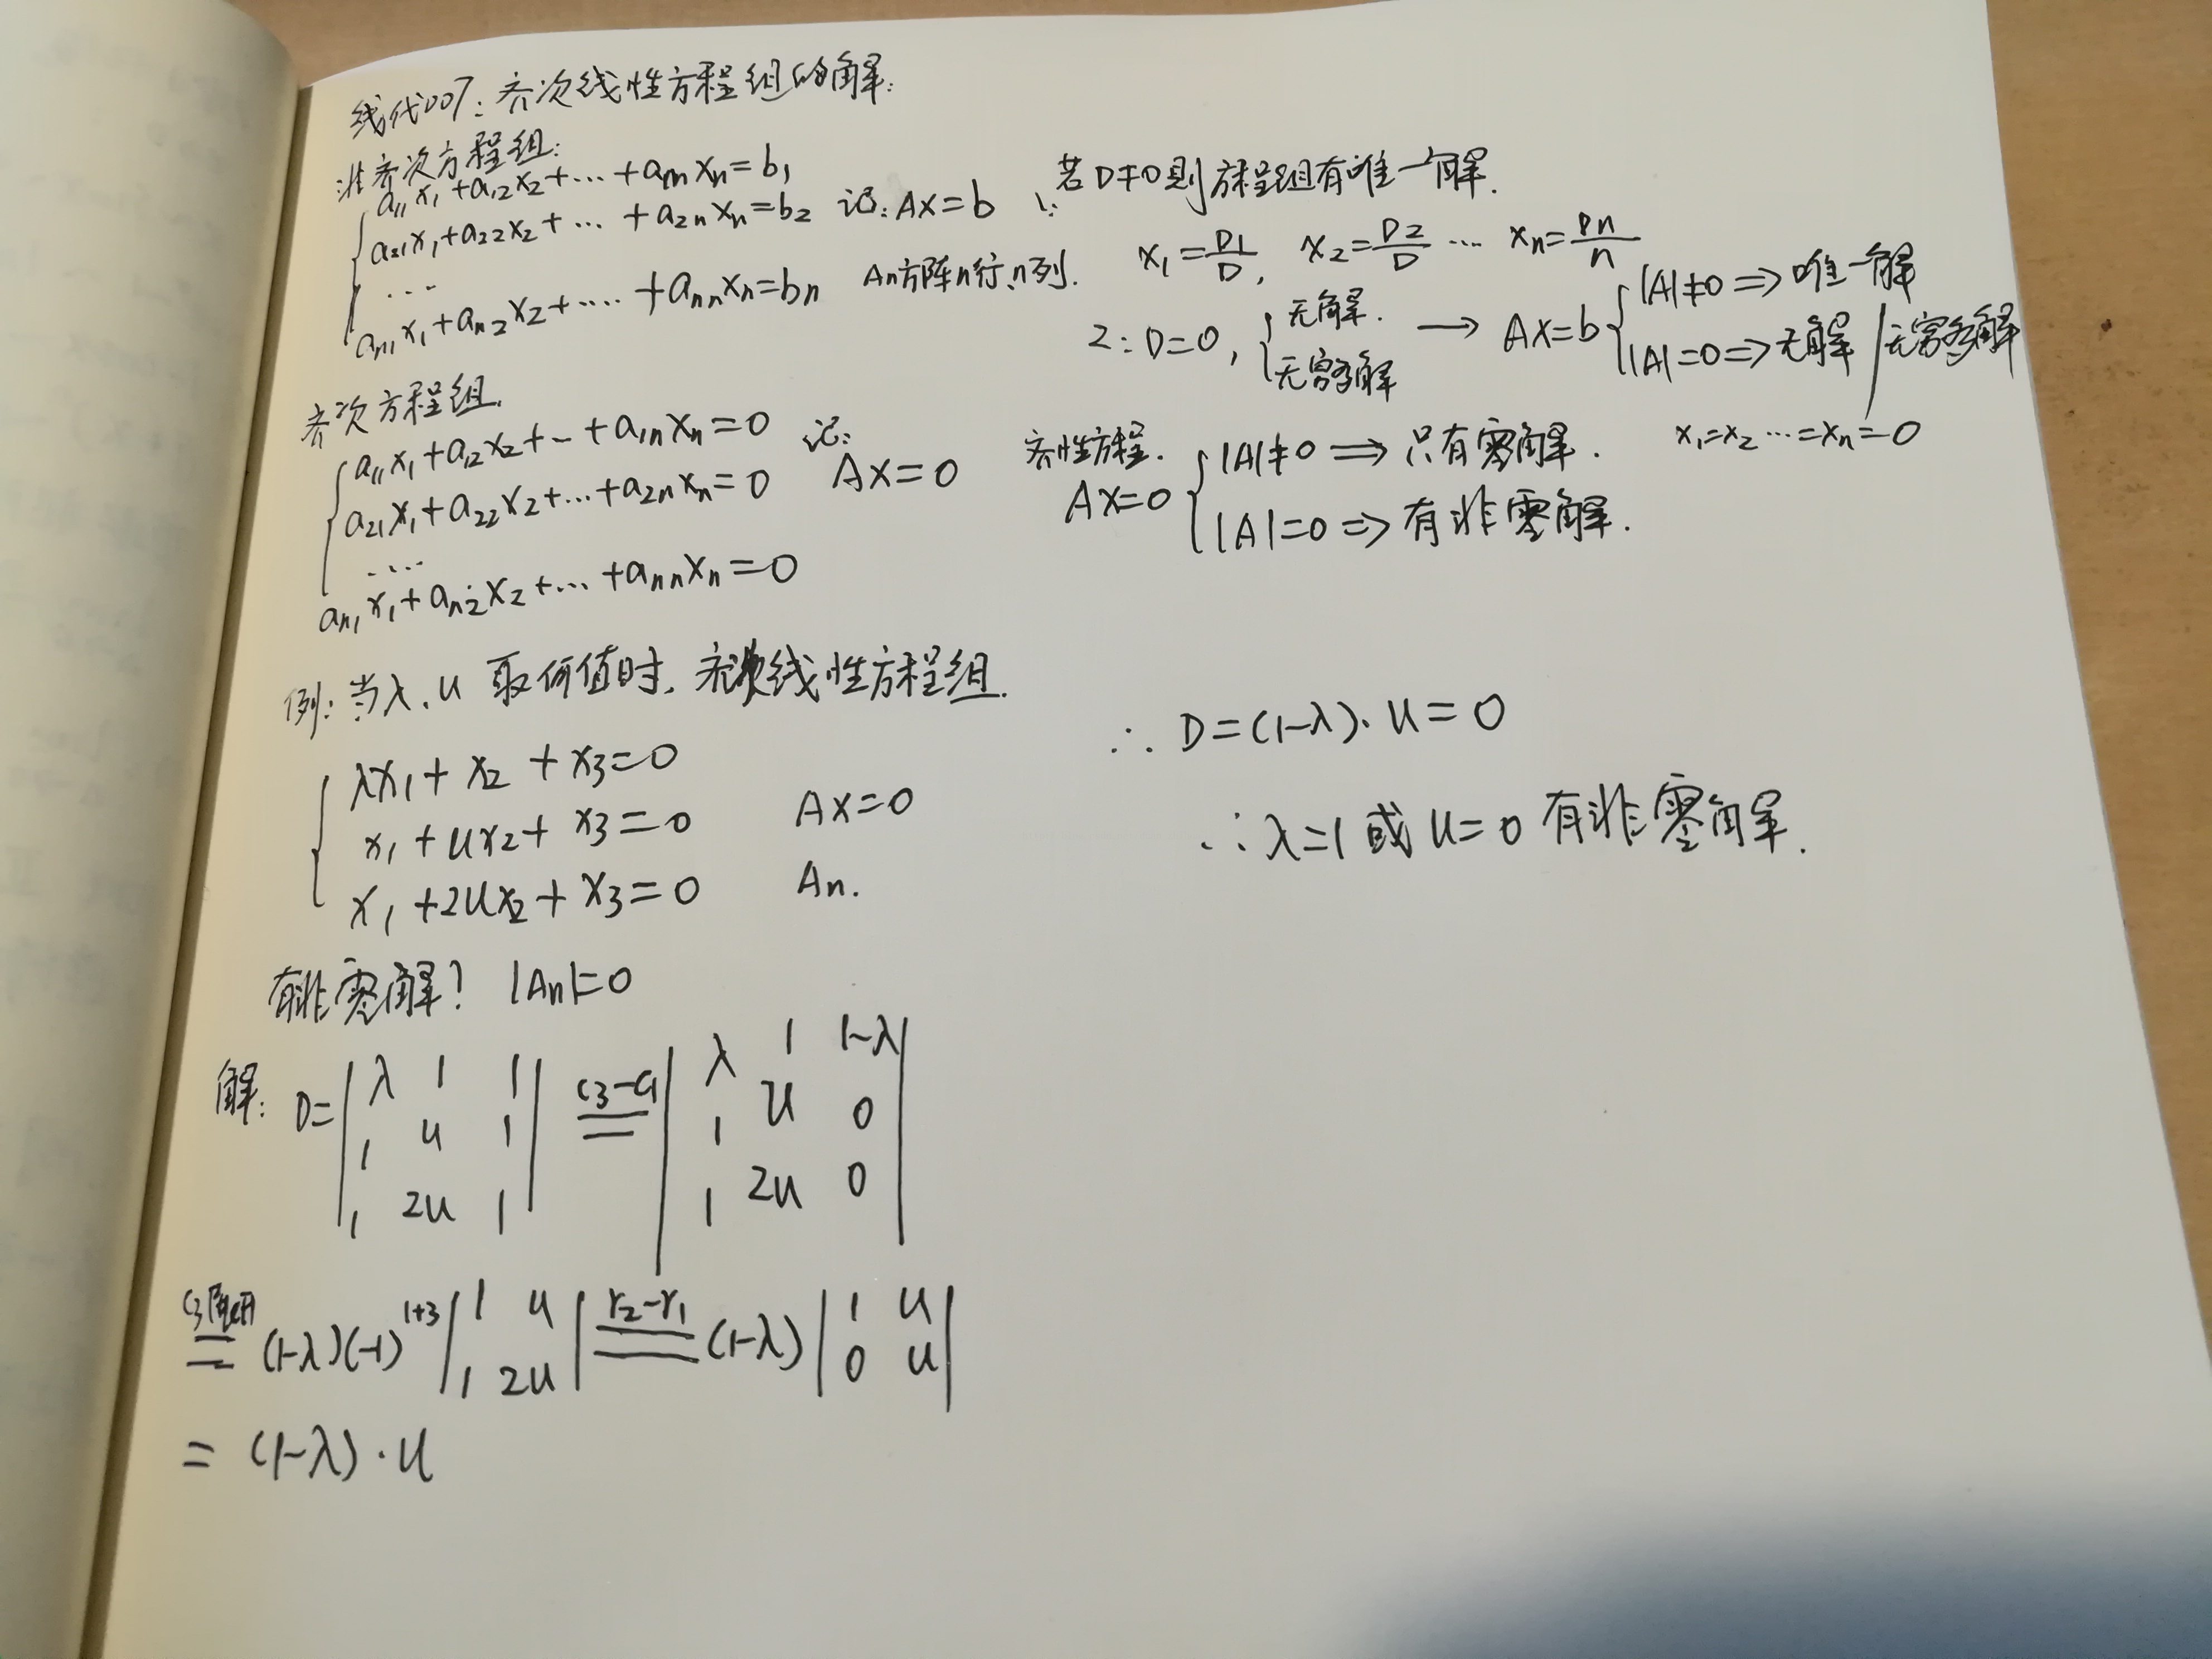 线代007：齐次线性方程组的解：
非齐次方程组：
a11x1+a12x2+…+a1nxn=b1
a21x1+a22x2+…+a2nxn=b2 记：AX=b
…
an1x1+an2x2+….+annxn=bn An方阵n行、n列.
1: 若D≠0则方程组有唯一解.
x1=D1/D, x2=D2/D … xn=Dn/n
2：D=0, { 无解. 无穷多解 → AX=b { |A|≠0 ⇒ 唯一解
|A|=0 ⇒ 无解/无穷多解
齐次方程组.
a11x1+a12x2+…+a1nxn=0 记：
a21x1+a22x2+…+a2nxn=0 AX=0
….
an1x1+an2x2+…+annxn=0
齐性方程.
AX=0 { |A|≠0 ⇒ 只有零解. x1=x2…=xn=0
|A|=0 ⇒ 有非零解.
例：当λ.u 取何值时.齐次线性方程组.
λx1+x2+x3=0
x1+ux2+x3=0 AX=0
x1+2ux2+x3=0 An.
有非零解？ |An|=0
解：D= | λ 1 1 | c3-c1 | λ 1 1-λ |
| 1 u 1 | = | 1 u 0 |
| 1 2u 1 | | 1 2u 0 |
c3展开 = (1-λ)(-1)^1+3 | 1 u | r2-r1 = (1-λ) | 1 u |
| 1 2u | | 0 u |
= (1-λ)·u
∴ D=(1-λ)·u=0
∴ λ=1 或 u=0 有非零解.